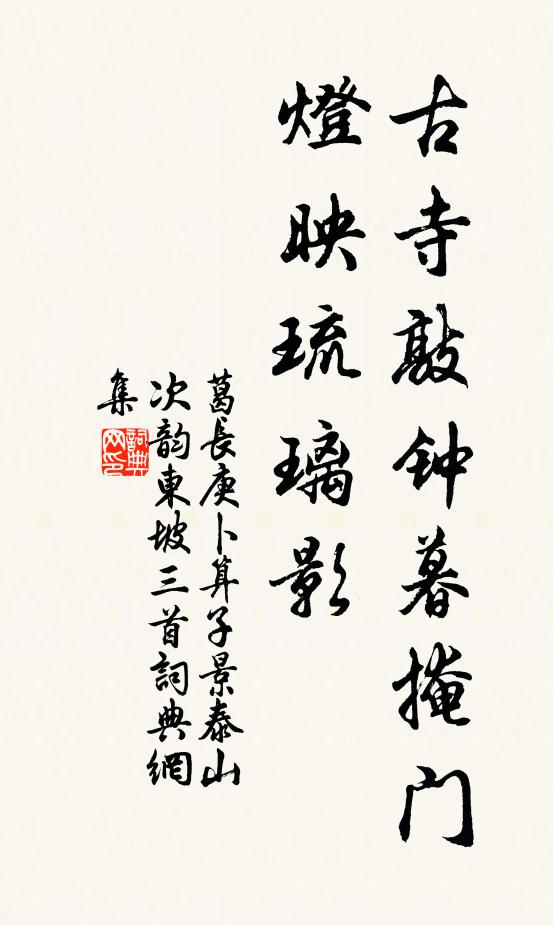 古寺敲钟暮掩门
燈映琉璃影
葛長庚卜算子景泰山
次韵東坡三首詞典網
集
詞典网印